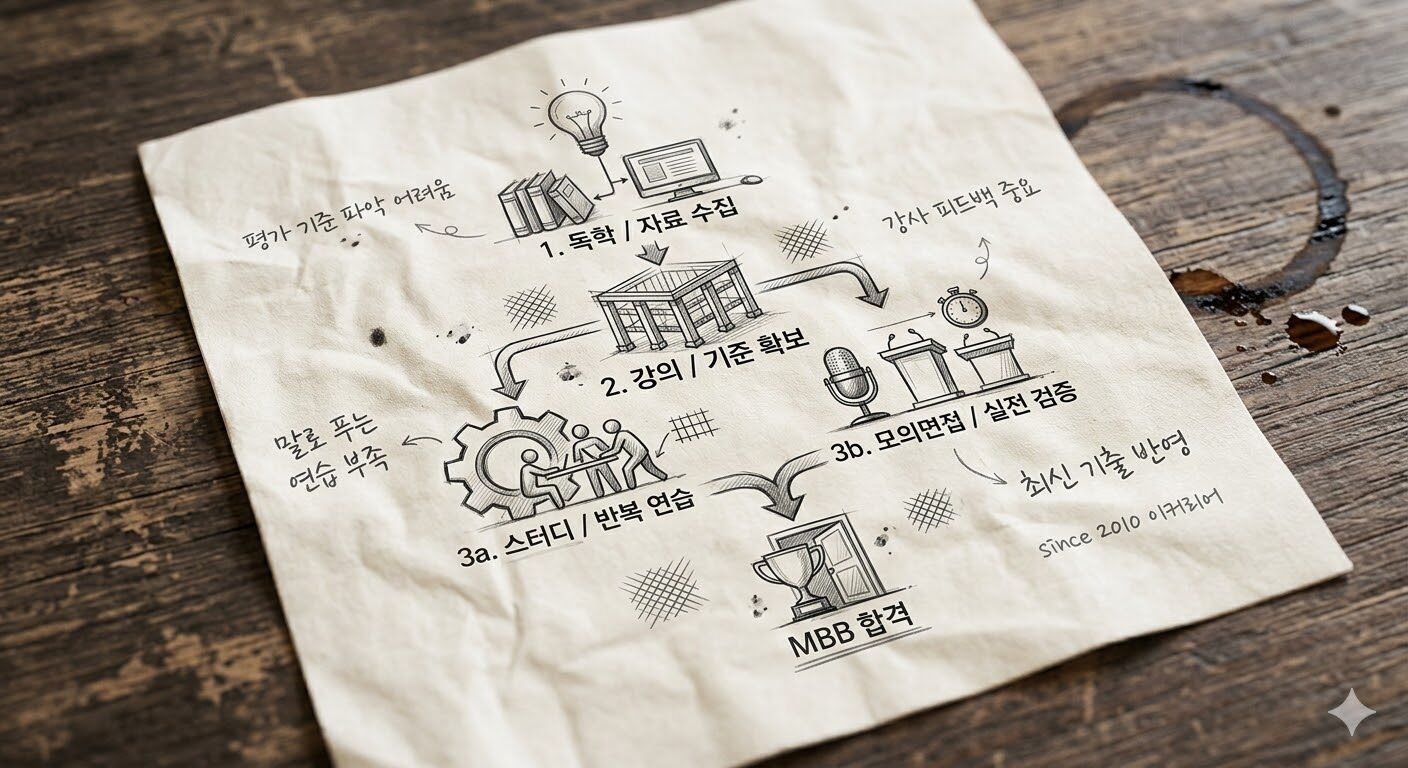 1. 독학 / 자료 수집
평가 기준 파악 어려움
강사 피드백 중요
2. 강의 / 기준 확보
3b. 모의면접 / 실전 검증
말로 푸는
연습 부족
최신 기출 반영
3a. 스터디 / 반복 연습
since 2010 이커리어
MBB 합격